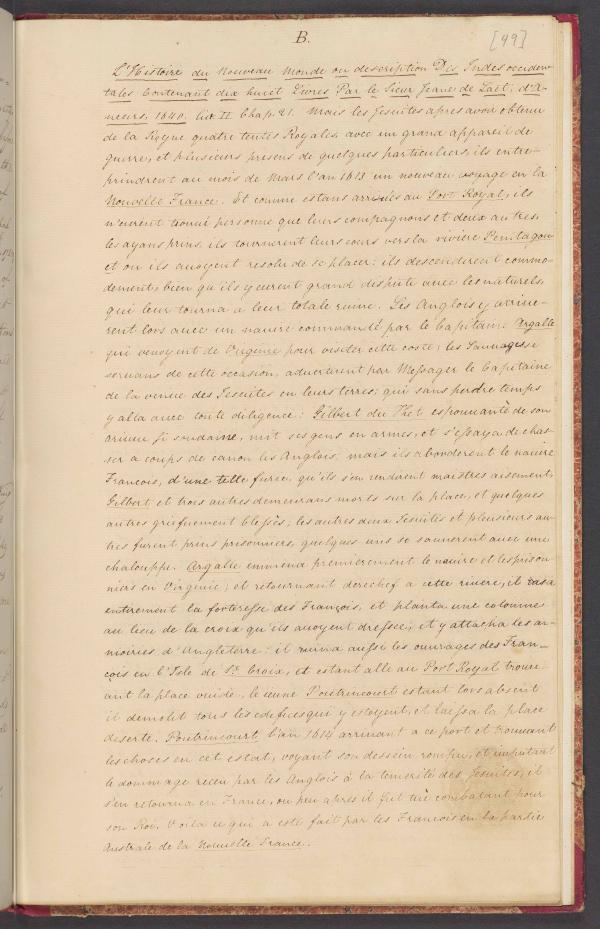 B.
[49]
L'Histoire du Nouveau Monde ou description Des Indes occiden-
tales Contenant dix huit Livres Par le Sieur Jeane de Laet, d'A-
neurs, 1640. Liv II Chap. 21. Mais les Jesuites apres avoir obtenu
de la Royne quatre tentes Royales avec un grand appareil de
guerre, et plusieurs presens de quelques particuliers, ils entre-
prindrent au mois de Mars l'an 1613 un nouveau voyage en la
Nouvelle France. Et comme estans arrivés au Port Royal, ils
n'eurent trouvé personne que leurs compagnons et deux autres,
les ayans prins, ils tournerent leurs cours vers la riviere Pemtagou
et ou ils avoyent resolu de se placer: ils descenderent commo-
dement, bien qu'ils y eurent grand dispute avec les naturels,
qui leur tourna a leur totale ruine. Les Anglois y arrive-
rent lors avec un navire commandé par le Capitaine Argalle
qui venoyent de Virginie pour visiter cette coste; les Sauvages se
servans de cette occasion, advertirent par Messager le Capitaine
de la venue des Jesuites en leurs terres; qui sans perdre temps
y alla avec toute diligence: Gilbert du Thet espouvanté de son
arivee si soudaine, mit ses gens en armes, et s'essaya de chas-
ser a coups de canon les Anglois, mais ils abonderent le navire
Francois, d'une telle furee, qu'ils s'en rendirent maistres aisement,
Gilbert et trois autres demeurans morts sur la place, et quelques
autres griefvement blessés; les autres deux Jesuites et plusieurs au-
tres furent prins prisonniers, quelques uns se sauverent avec une
chalouppe. Argalle emmena premierement le navire et les prison-
niers en Virginie; et retournant derechef a cette riviere, il rasa
entierement la forteresse des François, et planta une colonne
au lieu de la croix qu'ils avoyent dressee, et y attacha les ar-
moiries d'Angleterre: il ruina aussi les ouvrages des Fran-
çois en l'Isle de St. Croix, et estant allé au Port Royal trouv-
ant la place vuide, le jeune Poutrincourt estant lors absent
il demolit tous les edefices qui y estoyent, et laissa la place
deserte. Poutrincourt l'an 1614 arrivant a ce port et trouvant
les choses en cet estat, voyant son dessein rompu, et imputant
le dommage receu par les Anglois à la temerité des Jesuites, il
s'en retourna en France, ou peu apres il fut tué combatant pour
son Roi. Voila ce qui a esté fait par les Francois en la partie
Australe de la Nouvelle France.